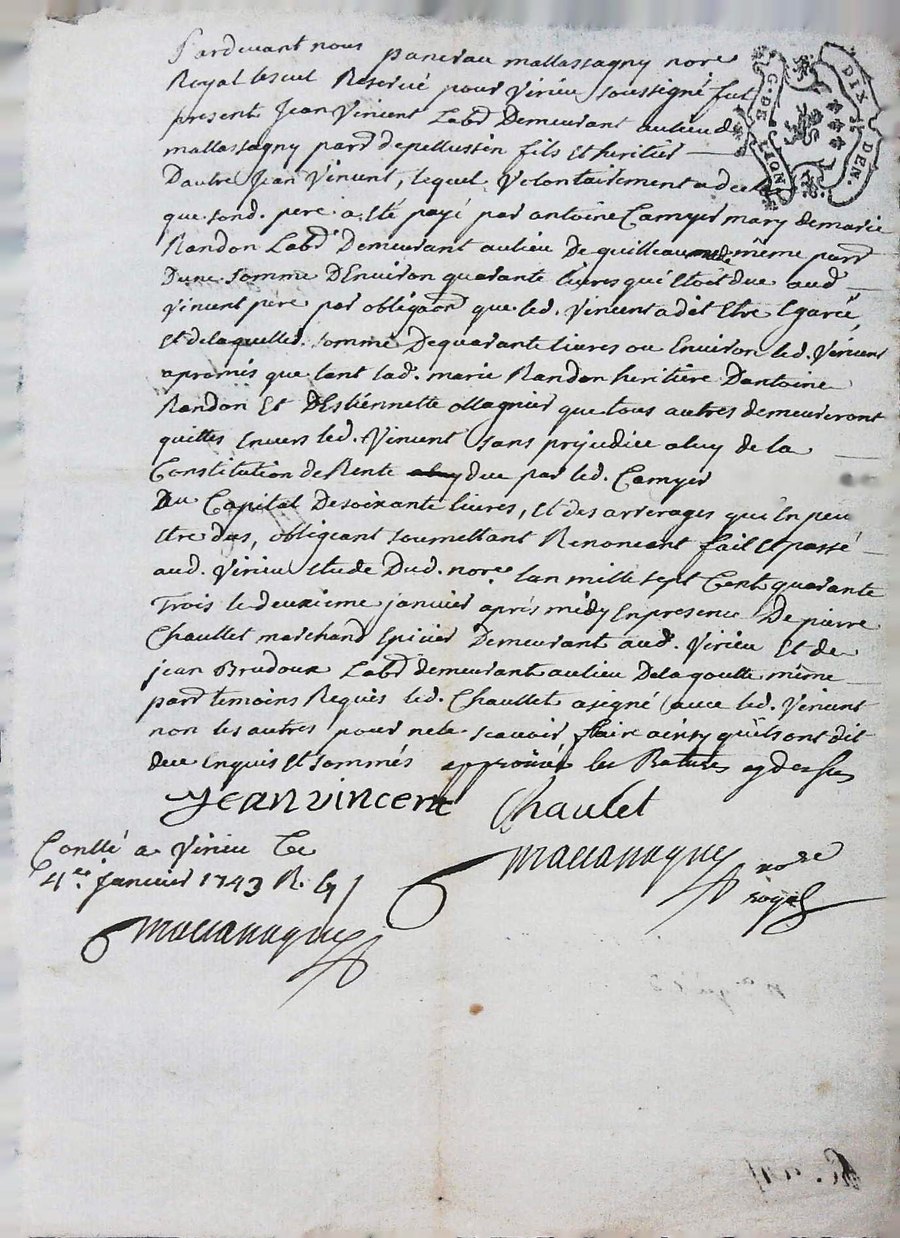 Pardevant nous pancrau mallassagny nore
Royal Reservé pour Virieu soussigné fut
present Jean Vincent Labd Demeurant au lieu de
mallassagny parr depellussin fils et heritier
Dautre Jean Vincent, lequel Volontairement a
que sond. pere a été payé par antoine Camyer mary de marie
Randon Labd Demeurant au lieu De guilleau même parr
Dune somme DEnviron quarante livres qui Etoit due aud
Vincent pere par obligaon que led. Vincent a dit Etre Egarée,
Et de laquelle d. somme De quarante livres ou Environ led. Vincent
a promis que tant lad. marie Randon heritière Dantoine
Randon Et DEstiennette ollagnier que tous autres demeureront
quittes Envers led. Vincent sans prejudice a luy de la
Constitution de Rente due par led. Camyer
Du Capital De soixante livres, Et des arrerages qui En peu
Etre dus, obligeant soumettant Renonceant fait Et passé
aud. Virieu Etude Dud. nore lan mille sept Cent quarante
Trois le deuxieme janvier après midy En presence De pierre
Chaullet marchand Epicier Demeurant aud. Virieu Et de
jean Brudoux Labd demeurant au lieu De la goutte même
parr temoins Requis led. Chaullet a signé avec led. Vincent
non les autres pour ne le scavoir faire ainsy quils ont dit
de ce Enquis Et sommés approuvé les Ratures cy dessus
Jean vincent Chaulet
mallassagny nore
royal
Conllé a Virieu Ce
4e. Janvier 1743 R.
mallassagny
G. DE LION.
DIX DEN.